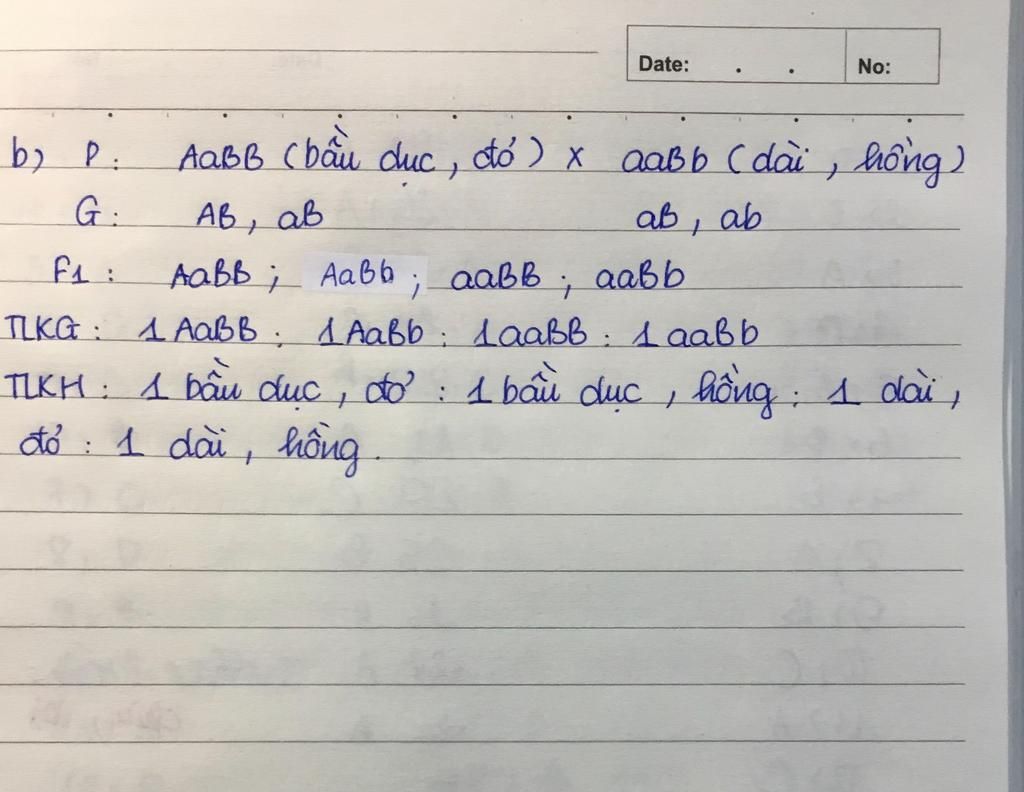 Date: . . No:
b) P: AaBB (bầu dục, đỏ) x aaBb (dài, hồng)
G: AB, aB aB, ab
F1: AaBB; AaBb; aaBB; aaBb
TLKG: 1 AaBB: 1 AaBb: 1 aaBB: 1 aaBb
TLKH: 1 bầu dục, đỏ: 1 bầu dục, hồng: 1 dài,
đỏ: 1 dài, hồng.